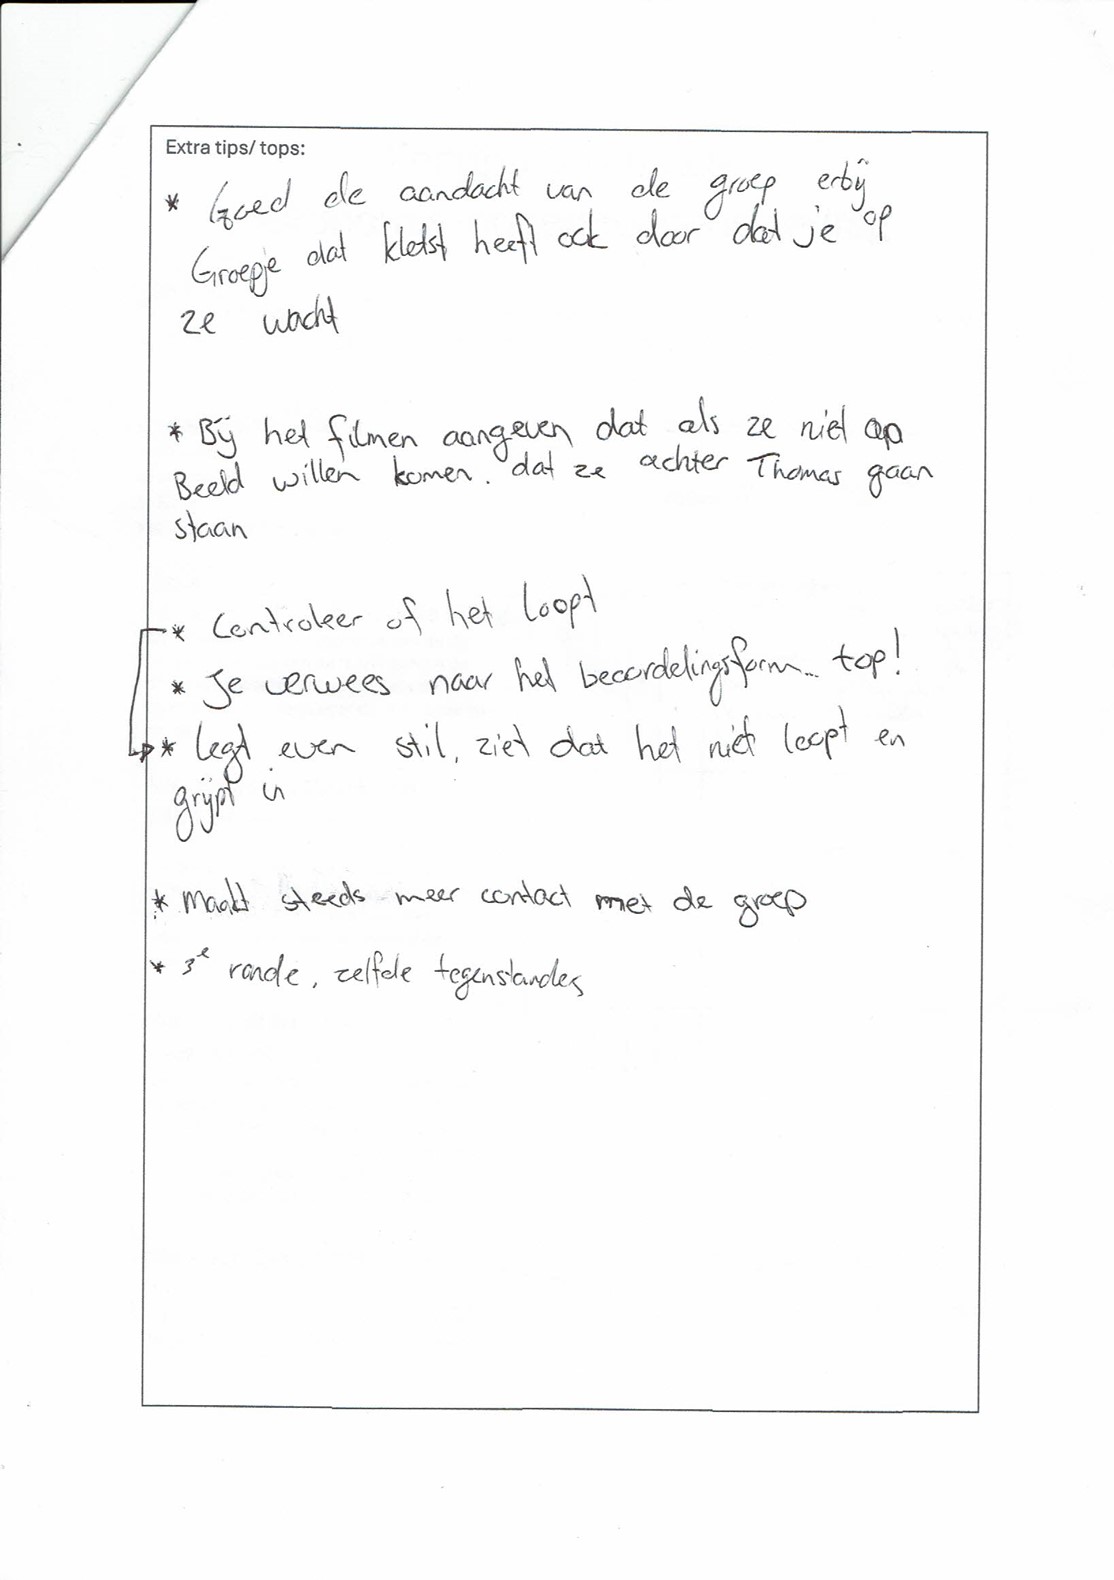 Extra tips/ tops:
* Goed de aandacht van de groep erbij
Groepje dat kletst heeft ook door dat je op
ze wacht
* Bij het filmen aangeven dat als ze niet op
Beeld willen komen. dat ze achter Thomas gaan
staan
* Controleer of het loopt
* Je verwees naar het beoordelingsform... top!
* legt even stil, ziet dat het niet loopt en
grijpt in
* Maakt steeds meer contact met de groep
* 3e ronde, zelfde tegenstandes